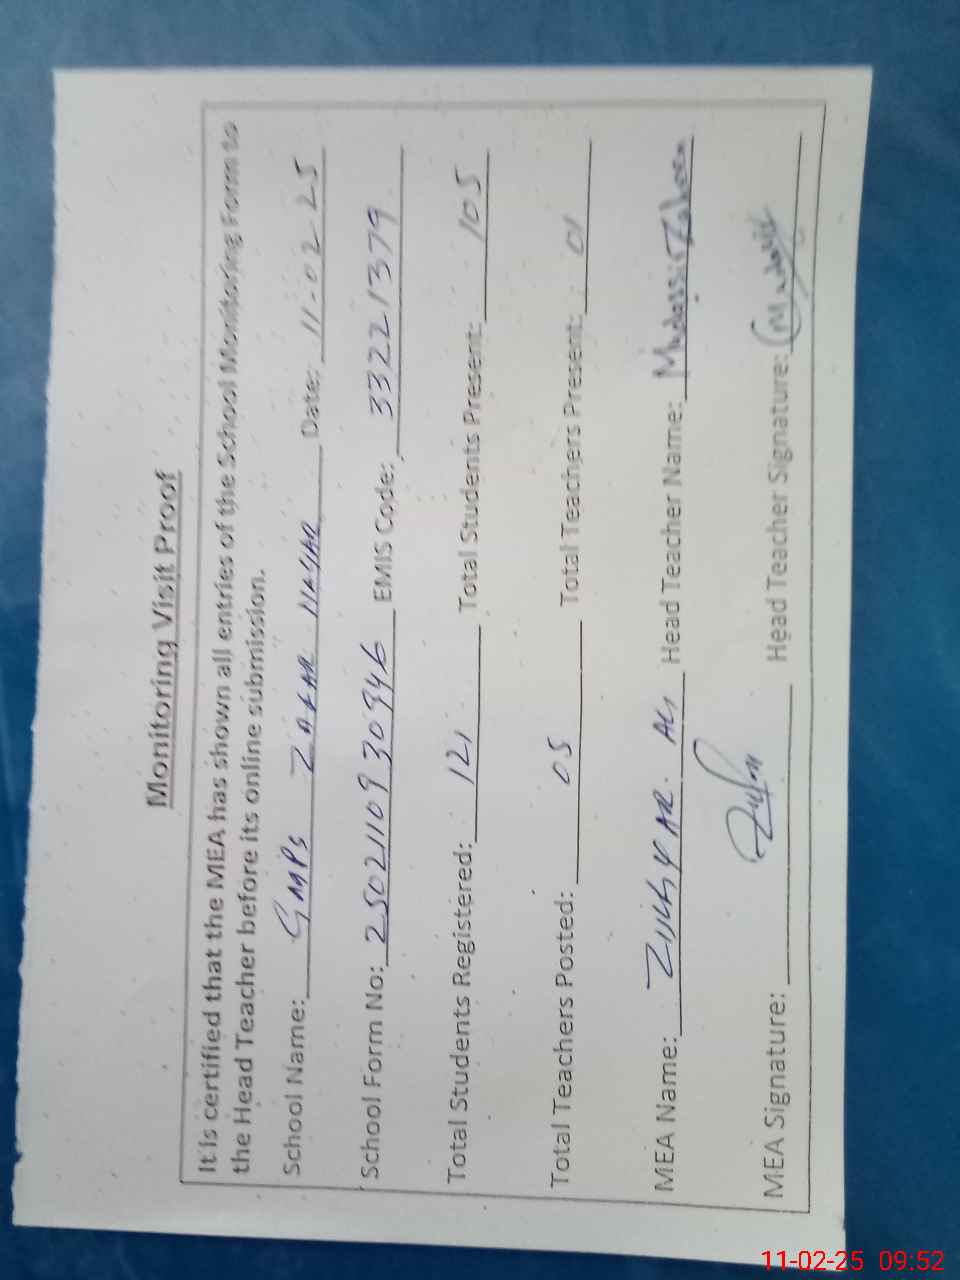 Monitoring Visit Proof
It is certified that the MEA has shown all entries of the School Monitoring Form to
the Head Teacher before its online submission.
School Name: GMPS ZAFAR NAYAR Date: 11-02-25
School Form No: 25021109 30946 EMIS Code: 33221379
Total Students Registered: 121 Total Students Present: 105
Total Teachers Posted: 05 Total Teachers Present: 01
MEA Name: ALi Head Teacher Name: Mudassir
MEA Signature: Head Teacher Signature:
11-02-25 09:52